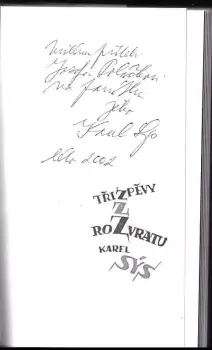 Milému příteli
Josefu Poláčkovi
na památku
Karel Sýs
léto 2002
TŘI ZPĚVY
Z
ROZVRATU
KAREL
SÝS